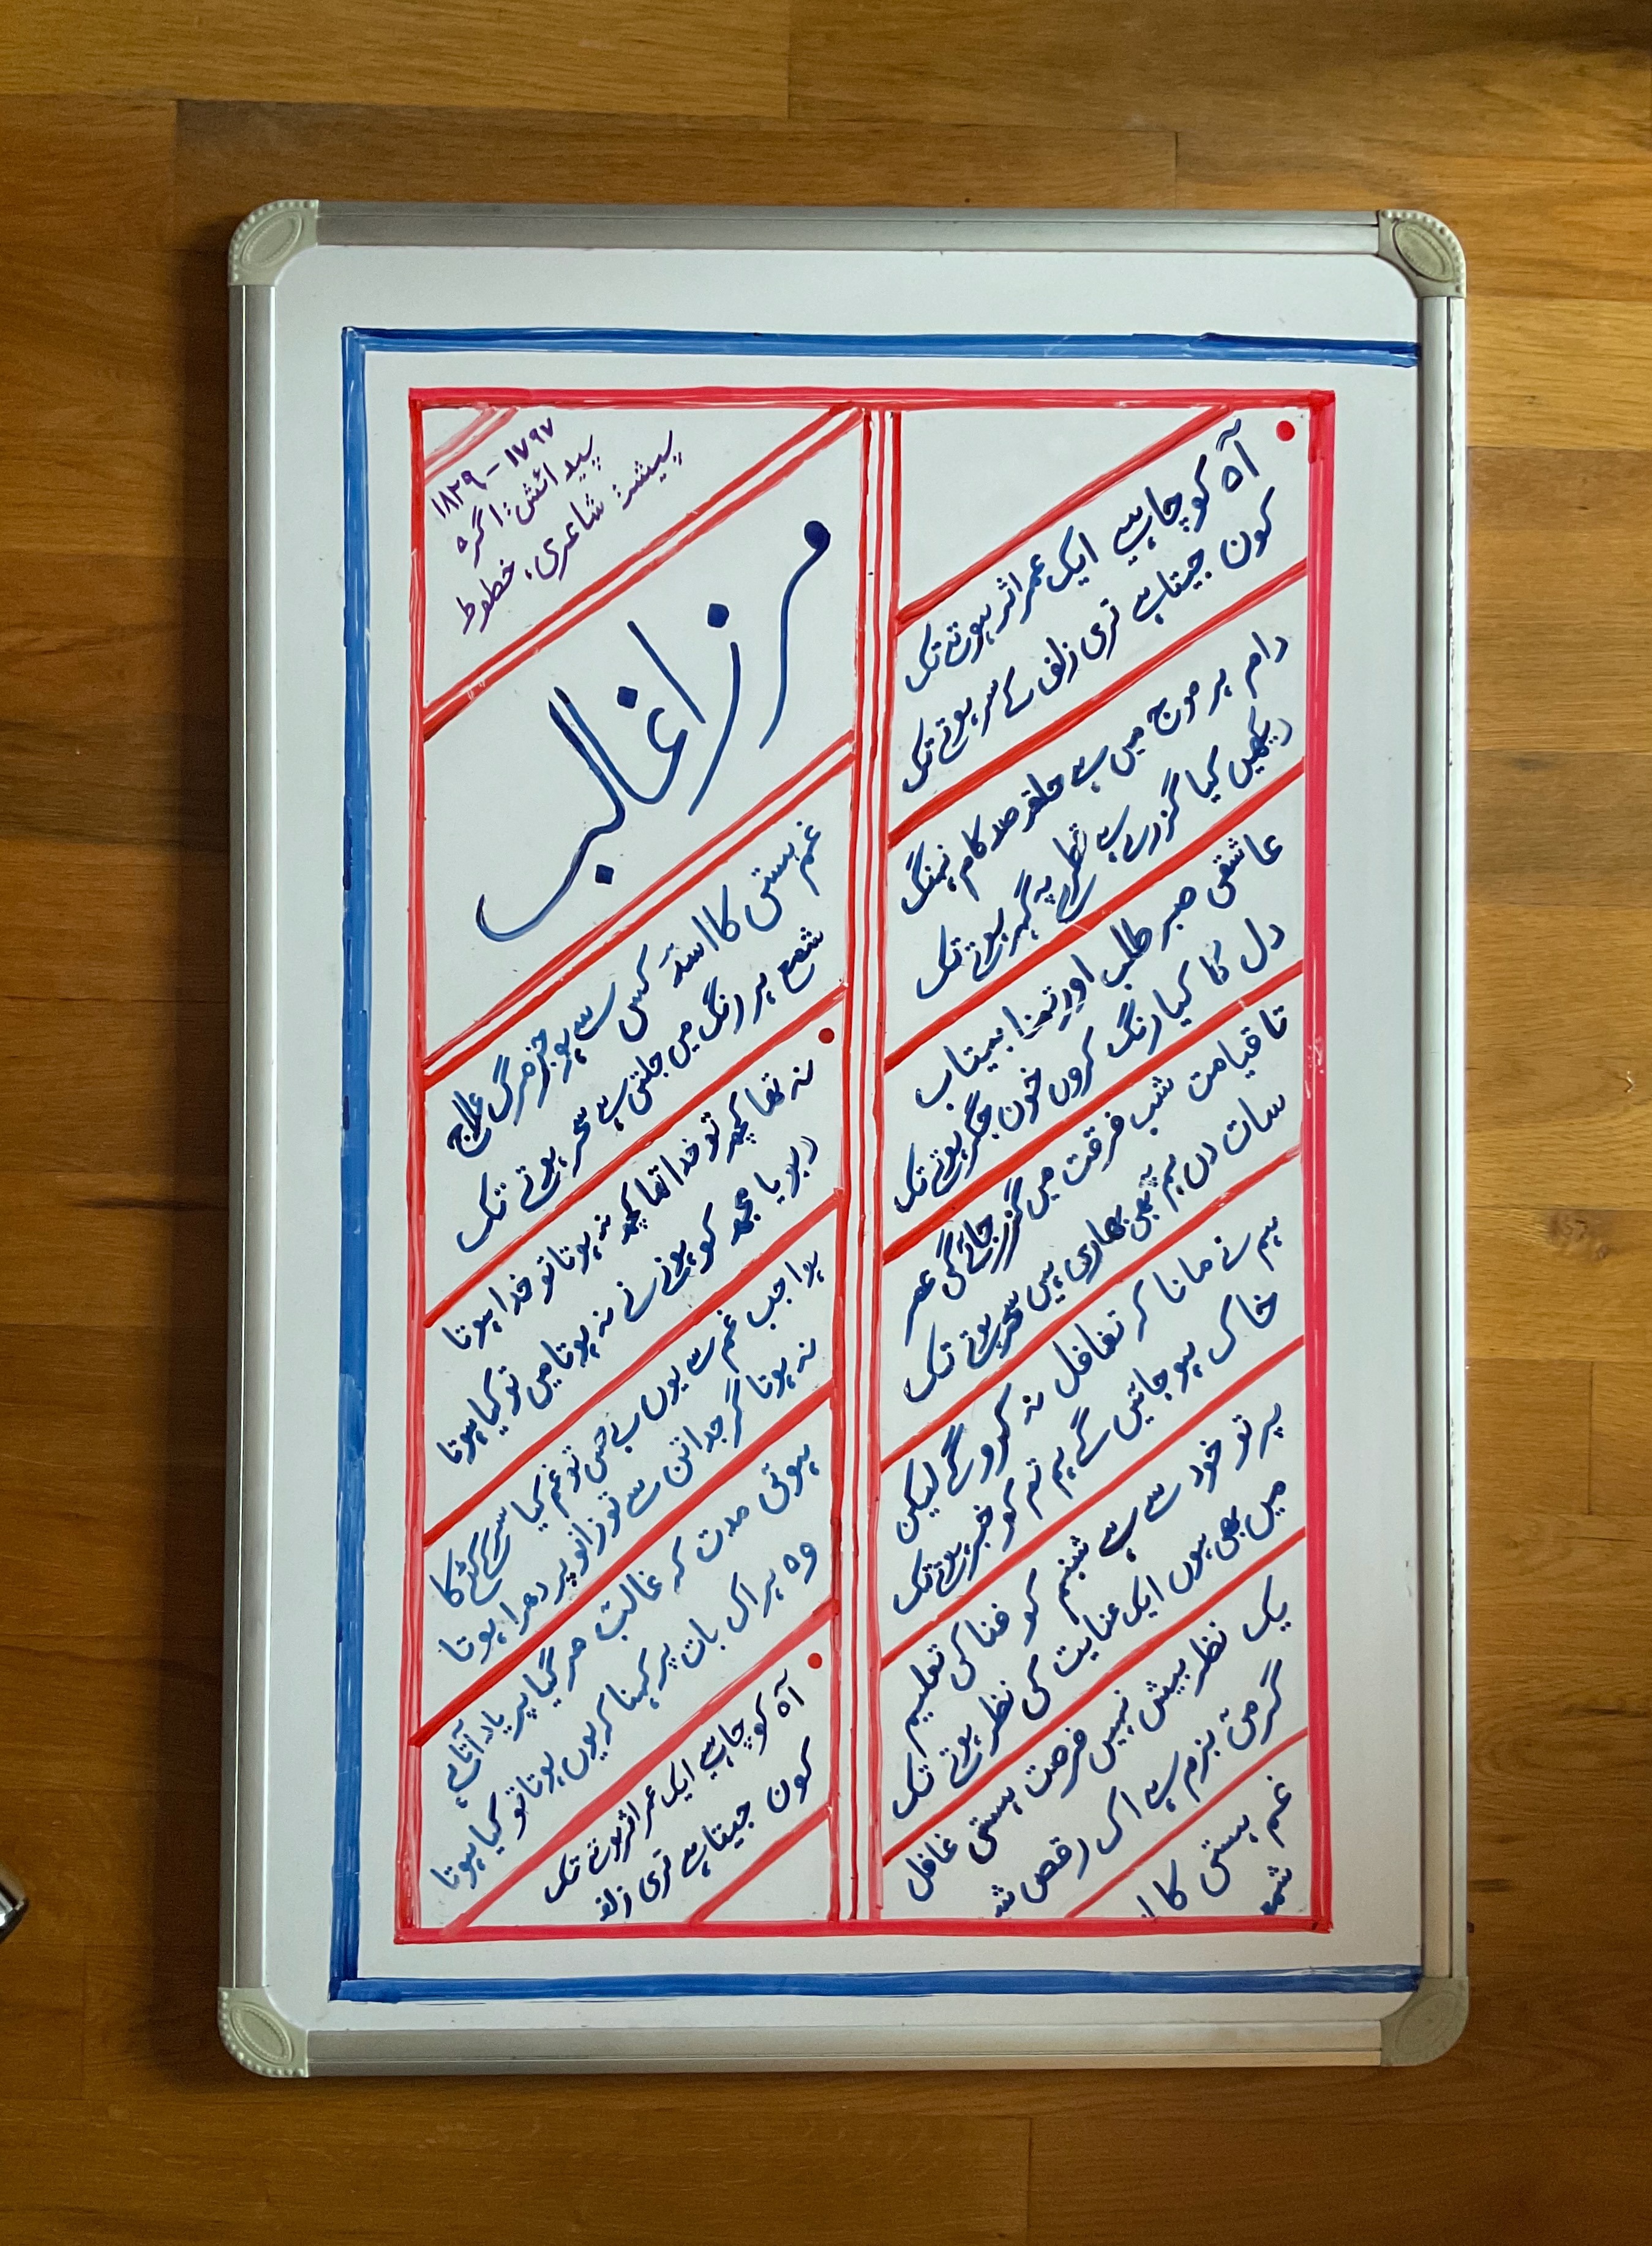 آہ کو چاہیے ایک عمر اثر ہوتے تک
کون جیتا ہے تری زلف کے سر ہوتے تک
دام ہر موج میں ہے حلقہ صد کام نہنگ
دیکھیں کیا گزرے ہے قطرے پہ گہر ہوتے تک
عاشقی صبر طلب اور تمنا بیتاب
دل کا کیا رنگ کروں خون جگر ہوتے تک
تا قیامت شب فرقت میں گزر جائے گی عمر
سات دن ہم پہ بھی بھاری ہیں سحر ہوتے تک
ہم نے مانا کہ تغافل نہ کرو گے لیکن
خاک ہو جائیں گے ہم تم کو خبر ہوتے تک
پرتو خود سے ہے شبنم کو فنا کی تعلیم
میں بھی ہوں ایک عنایت کی نظر ہوتے تک
یک نظر بیش نہیں فرصت ہستی غافل
گرمیٔ بزم ہے اک رقص ش
غم ہستی کا ا
شمع
۱۷۹۷ - ۱۸۲۹
پیدائش: اگرہ
پیشہ: شاعری، خطوط
مرزا غالب
غم ہستی کا اسدؔ کس سے ہو جز مرگ علاج
شمع ہر رنگ میں جلتی ہے سحر ہوتے تک
نہ تھا کچھ تو خدا تھا کچھ نہ ہوتا تو خدا ہوتا
دبویا مجھ کو ہونے نے نہ ہوتا میں تو کیا ہوتا
ہوا جب غم سے یوں بے حس تو غم کیا سر کے کٹنے کا
نہ ہوتا گر جدا تن سے تو زانو پر دھرا ہوتا
ہوئی مدت کہ غالب مر گیا پر یاد آتا ہے
وہ ہر اک بات پر کہنا کہ یوں ہوتا تو کیا ہوتا
آہ کو چاہیے ایک عمر اثر ہوتے تک
کون جیتا ہے تری زلف